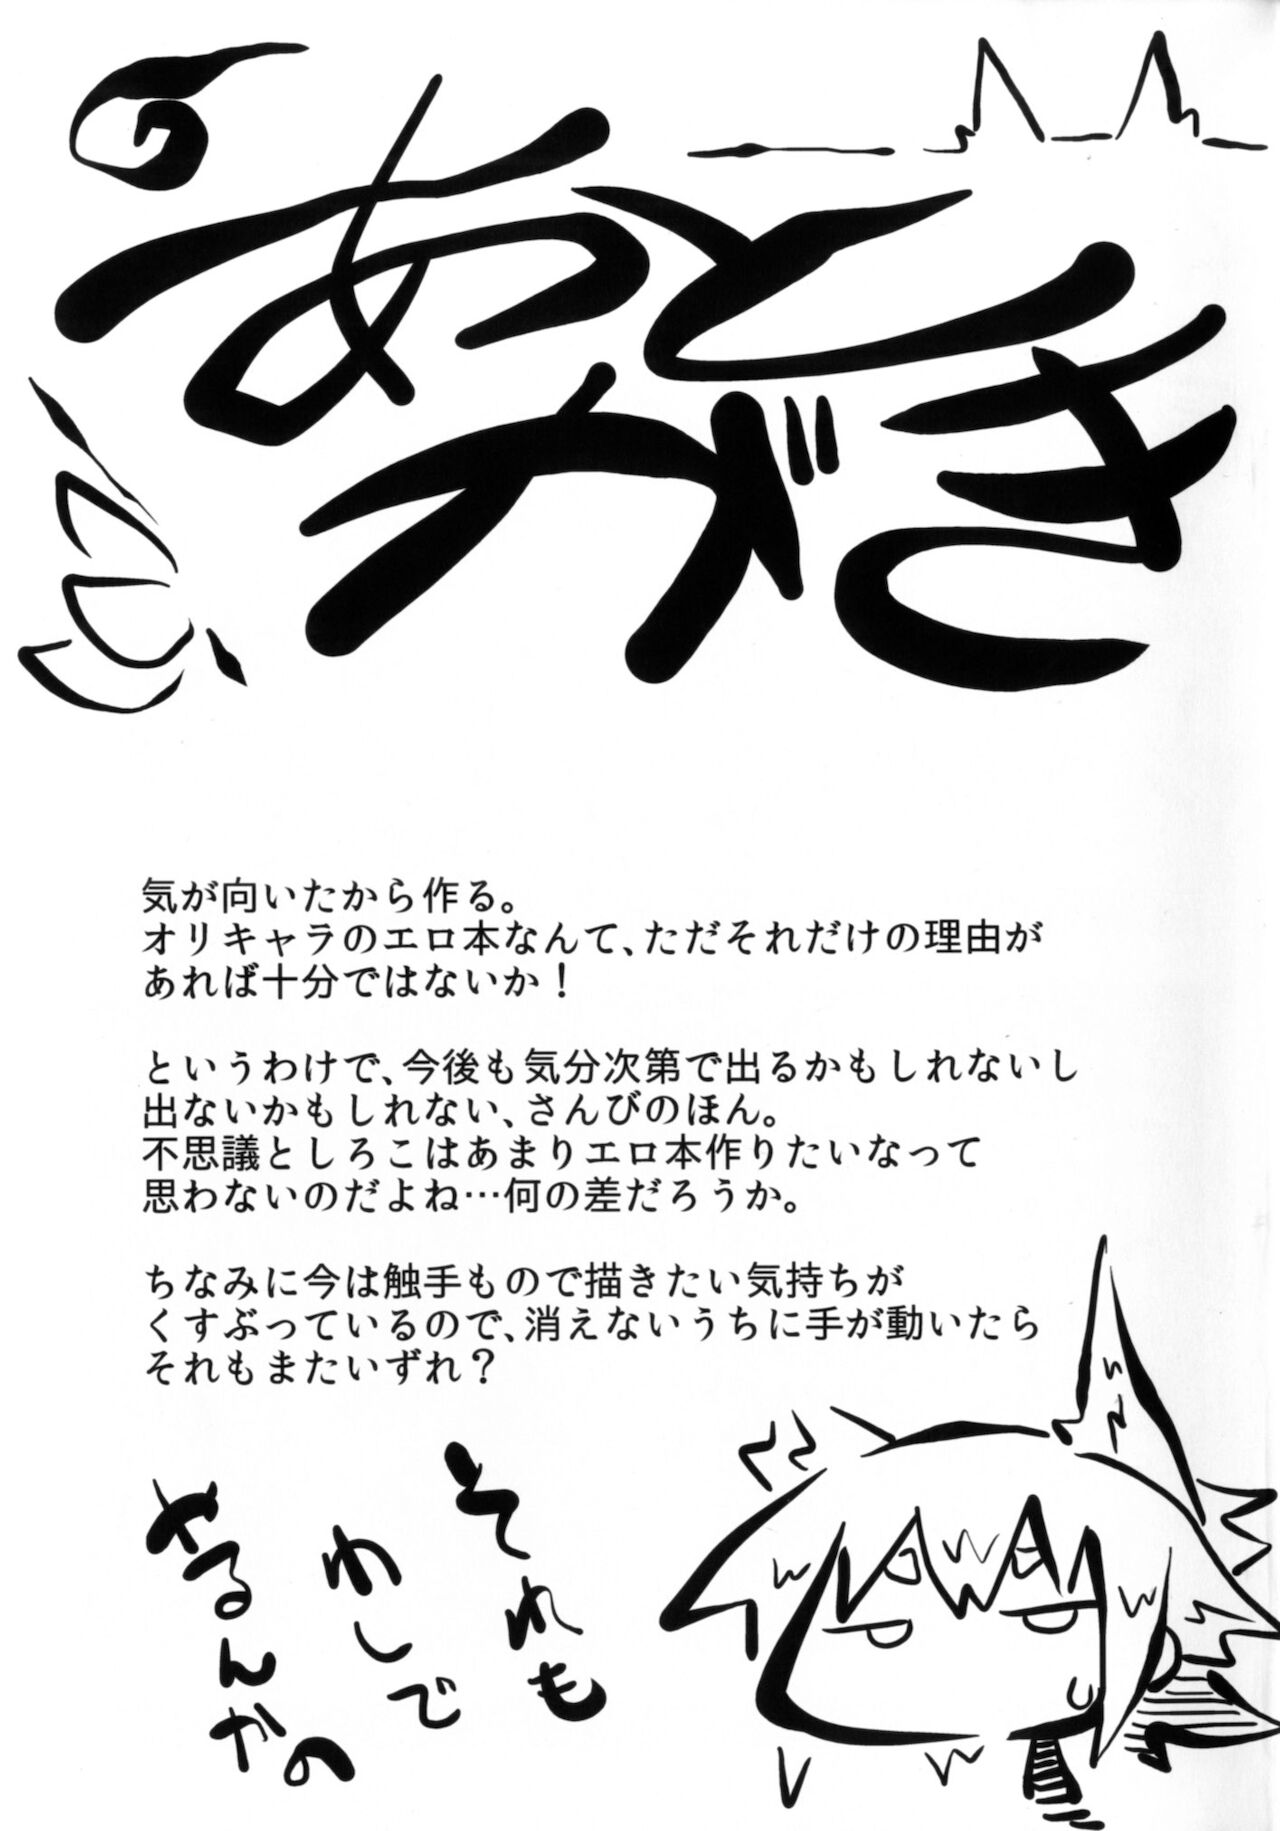 あとがき
気が向いたから作る。
オリキャラのエロ本なんて、ただそれだけの理由が
あれば十分ではないか！
というわけで、今後も気分次第で出るかもしれないし
出ないかもしれない、さんびのほん。
不思議としろこはあまりエロ本作りたいなって
思わないのだよね…何の差だろうか。
ちなみに今は触手もので描きたい気持ちが
くすぶっているので、消えないうちに手が動いたら
それもまたいずれ？
それも
わしで
やるんかの